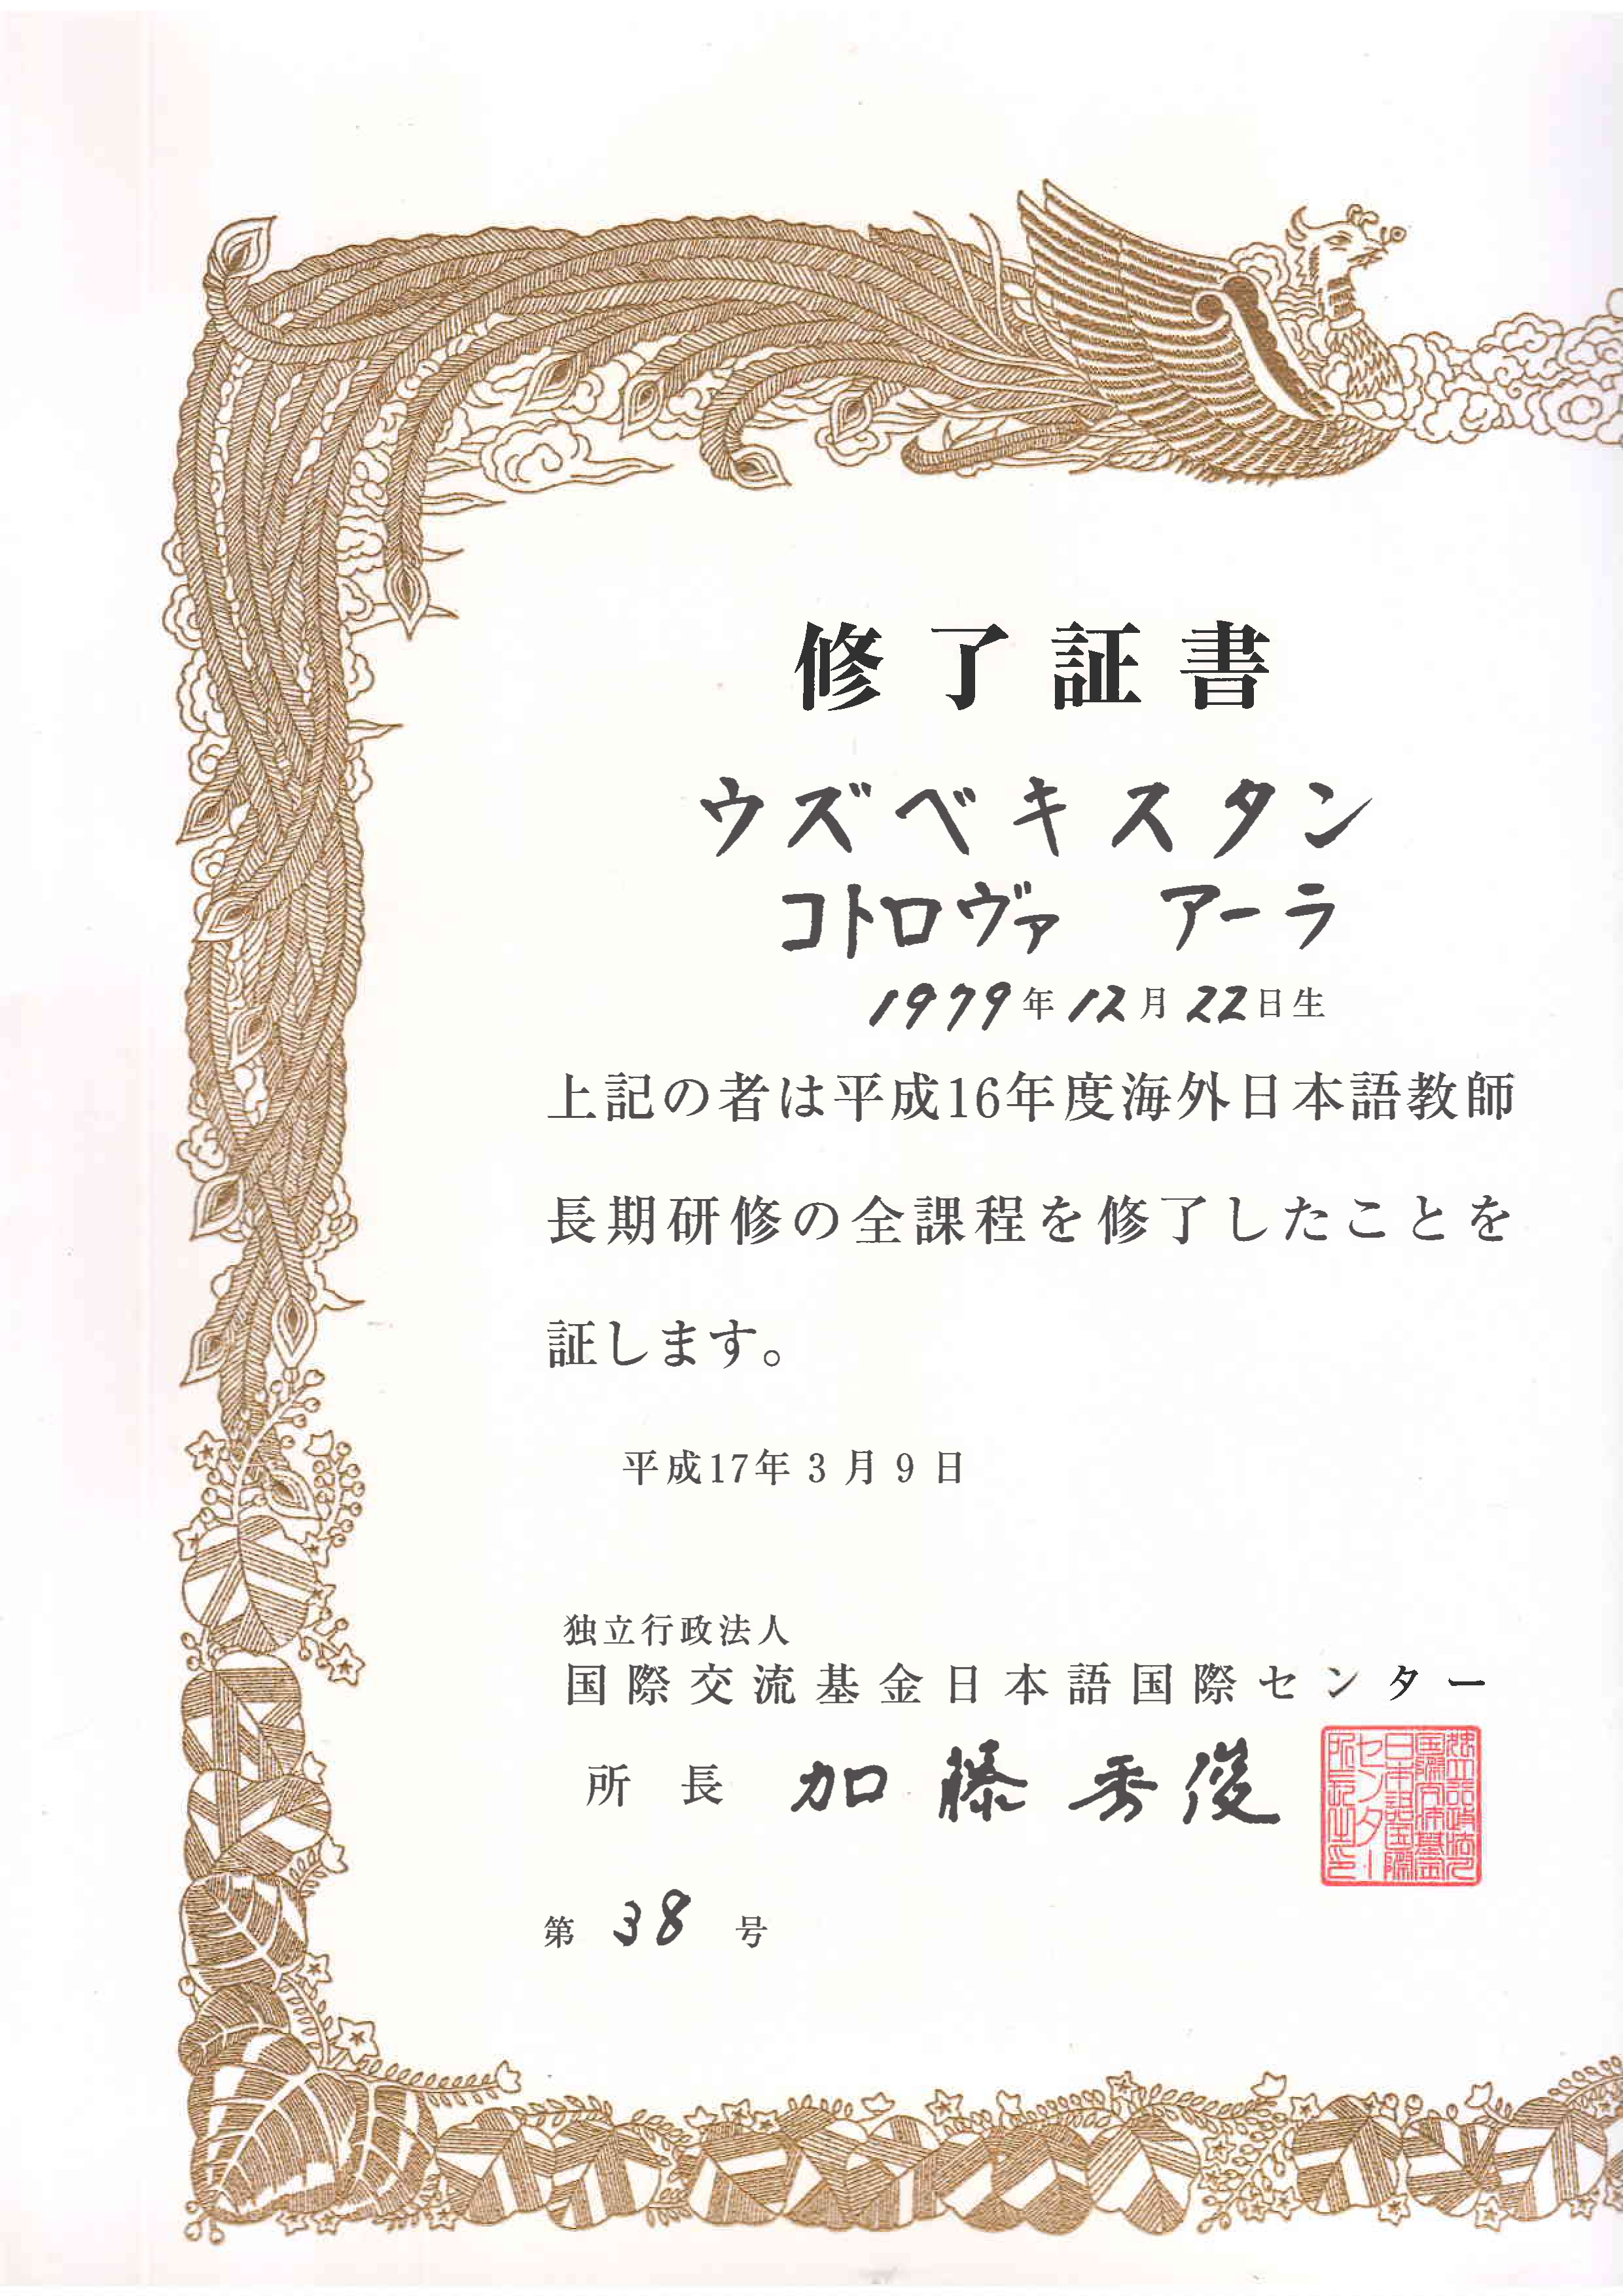 修了証書
ウズベキスタン
コトロヴァ アーラ
1979年12月22日生
上記の者は平成16年度海外日本語教師
長期研修の全課程を修了したことを
証します。
平成17年3月9日
独立行政法人
国際交流基金日本語国際センター
所長 加藤秀俊
独立行政法人
国際交流基金
日本語国際
センター
所長之印
第 38 号